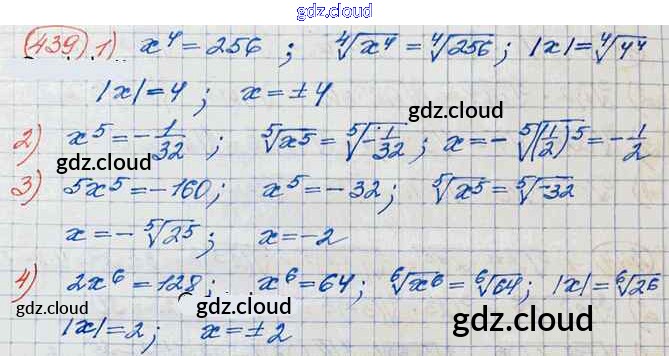 gdz.cloud
439 1) x⁴ = 256 ; ⁴√x⁴ = ⁴√256 ; |x| = ⁴√4⁴
|x| = 4 ; x = ±4
gdz.cloud
2) x⁵ = -1/32 ; ⁵√x⁵ = ⁵√-1/32 ; x = -⁵√(1/2)⁵ = -1/2
gdz.cloud gdz.cloud
3) 5x⁵ = -160 ; x⁵ = -32 ; ⁵√x⁵ = ⁵√-32
x = -⁵√2⁵ ; x = -2
gdz.cloud
4) 2x⁶ = 128 ; x⁶ = 64 ; ⁶√x⁶ = ⁶√64 ; |x| = ⁶√2⁶
gdz.cloud gdz.cloud
|x| = 2 ; x = ±2
gdz.cloud